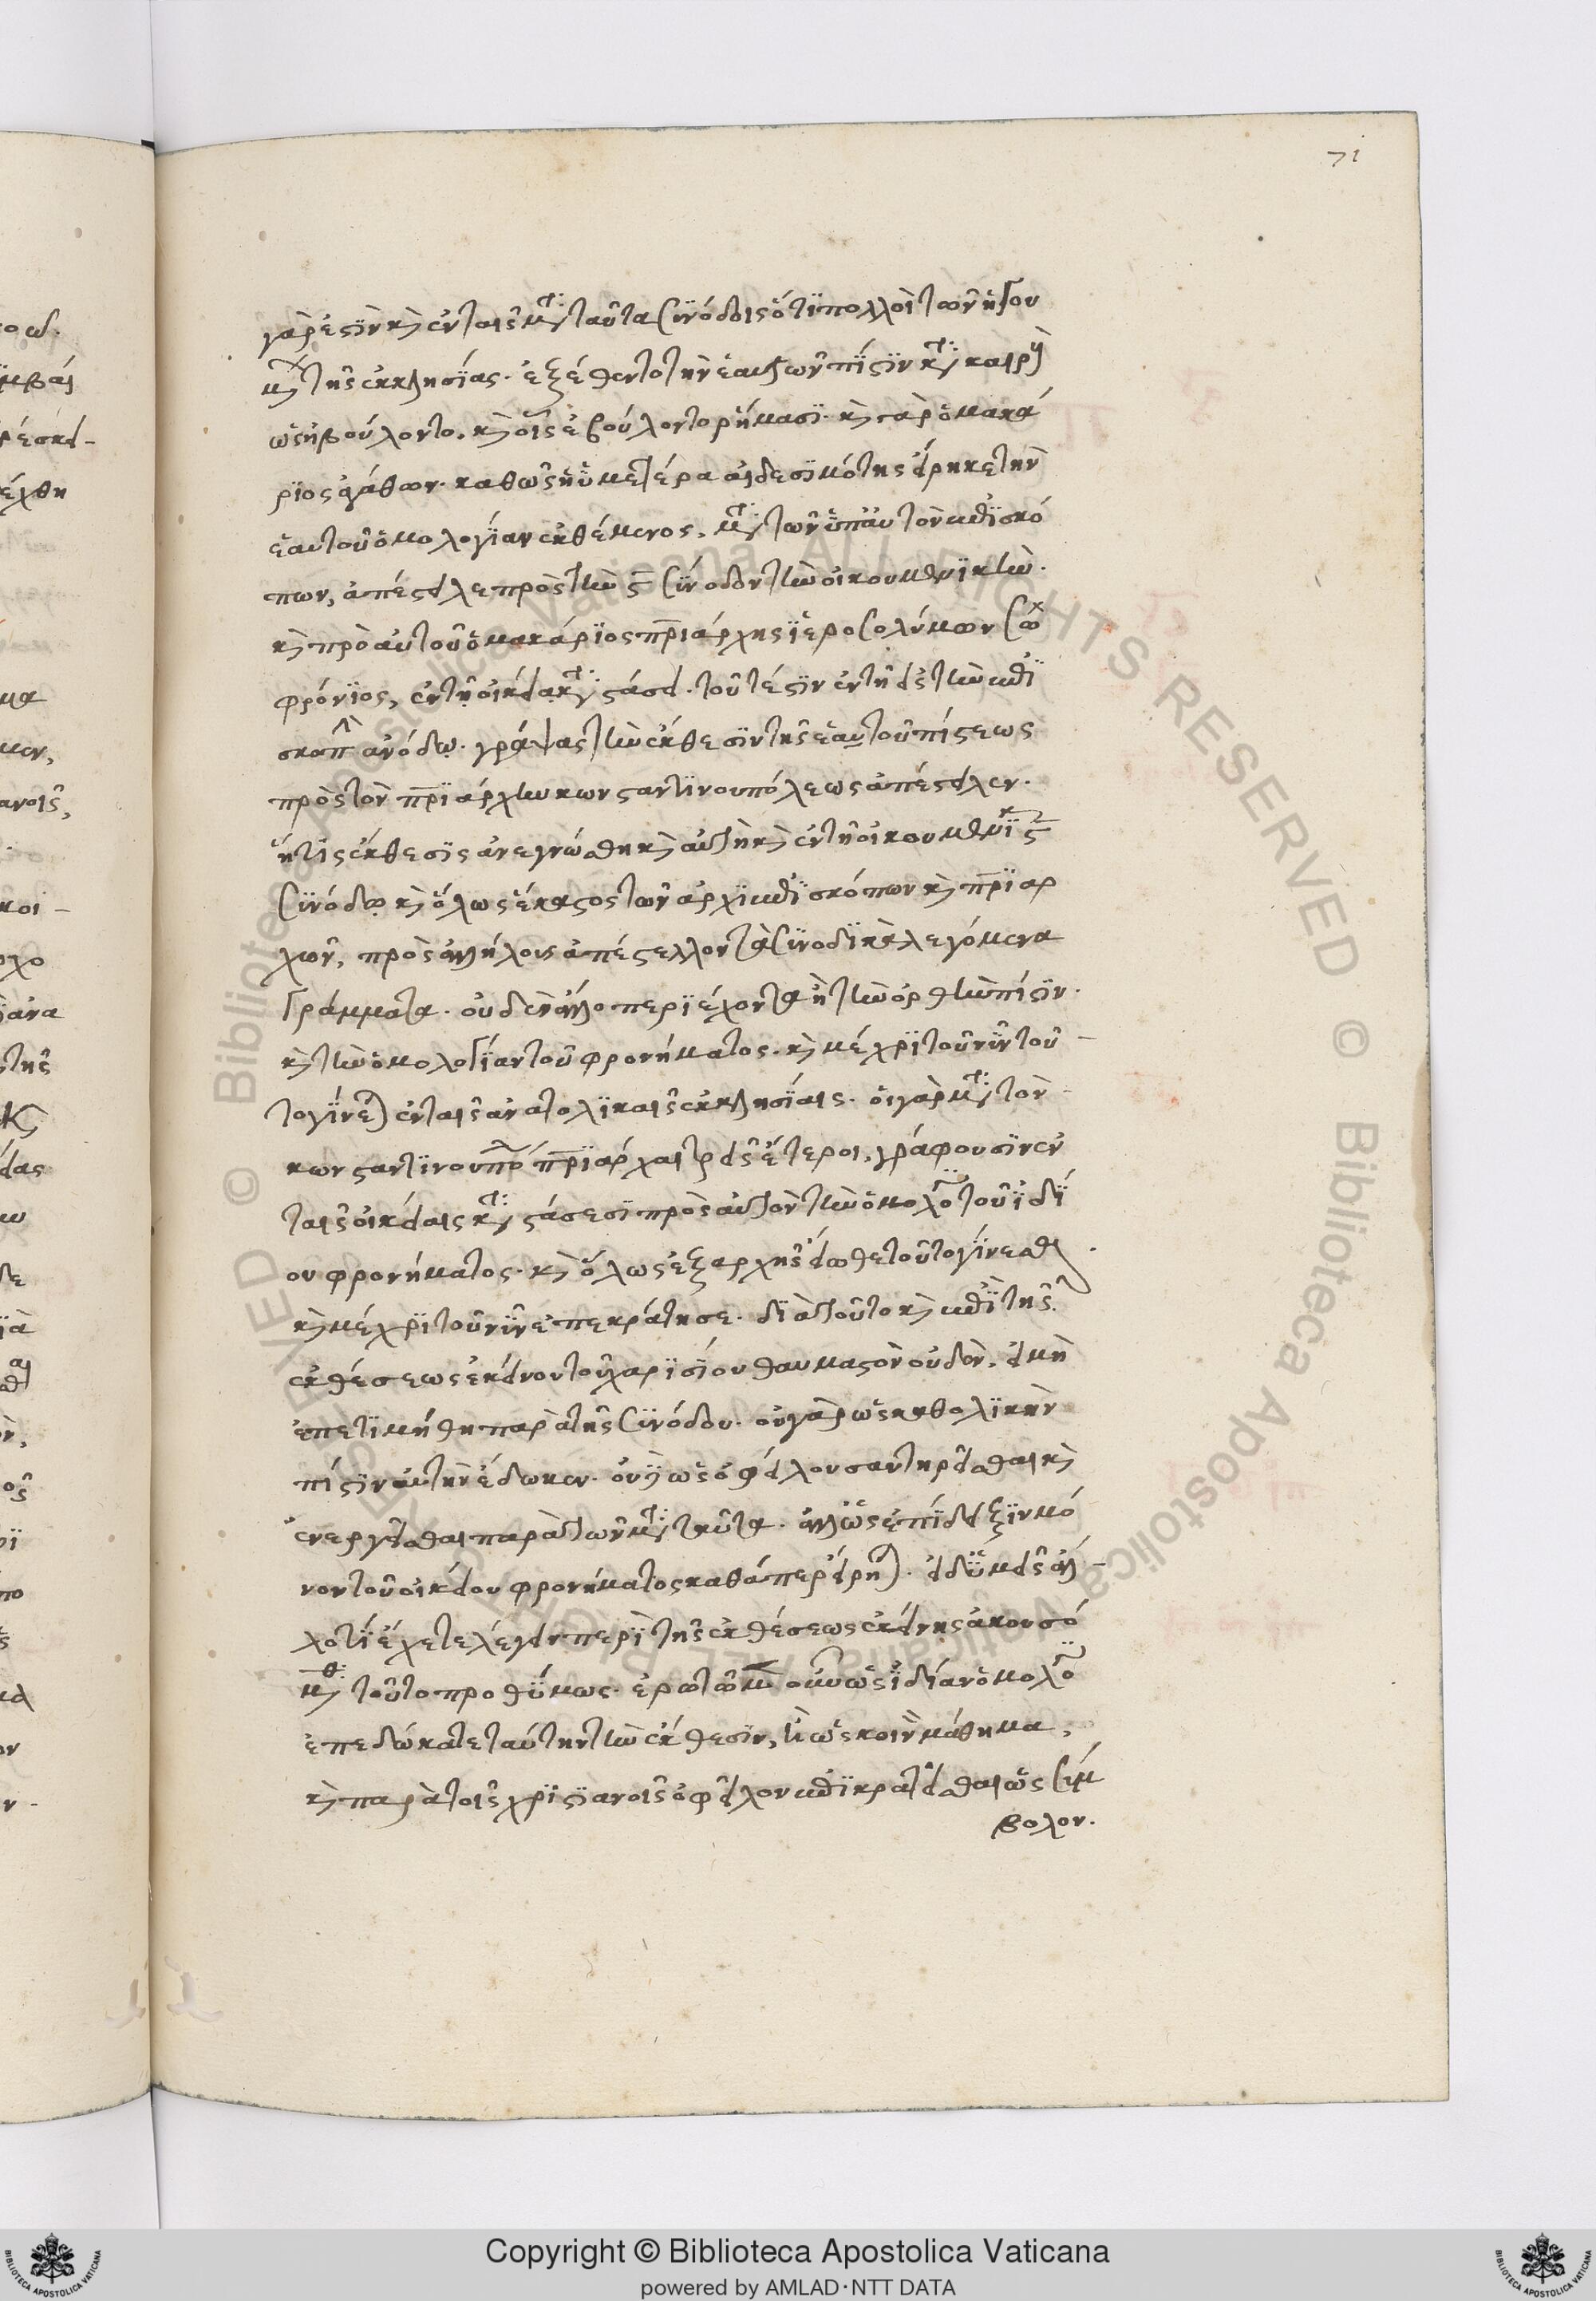 71
γὰρ ἐστὶν καὶ ἐν ταῖς μετὰ ταῦτα συνόδοις ὅτι πολλοὶ τῶν ἡγου
μένων τῆς ἐκκλησίας. ἐξέθεντο τὴν ἑαυτῶν πίστιν κατὰ καιροὺς
ὡς ἠβούλοντο. καὶ οἷς ἐβούλοντο ῥήμασι. καὶ γὰρ ὁ μακά
ριος ἀγάθων. καθὼς ἡ ὑμετέρα αἰδεσιμότης εἴρηκε τὴν
ἑαυτοῦ ὁμολογίαν ἐκθέμενος, μετὰ τῶν ὑπ' αὐτὸν ἐπισκό
πων, ἀπέστειλε πρὸς τὴν ϛ σύνοδον τὴν οἰκουμενικήν.
καὶ πρὸ αὐτοῦ ὁ μακάριος πριάρχης ἱεροσολύμων σω
φρόνιος, ἐν τῇ οἰκείᾳ καταστάσει. τοῦτέστιν ἐν τῇ εἰς τὴν ἐπι
σκοπὴν ἀνόδῳ. γράψας τὴν ἔκθεσιν τῆς ἑαυτοῦ πίστεως
πρὸς τὸν πριάρχην κωνσταντινουπόλεως ἀπέστειλεν.
ἥτις ἔκθεσις ἀνεγνώσθη καὶ αὐτὴ καὶ ἐν τῇ οἰκουμενικῇ ϛ
συνόδῳ καὶ ὅλως ἕκαστος τῶν ἀρχιεπισκόπων καὶ πριαρ
χῶν, πρὸς ἀλλήλους ἀπέστελλον τὰ συνοδικὰ λεγόμενα
γράμματα. οὐδὲν ἄλλο περιέχοντα ἢ τὴν ὀρθὴν πίστιν.
καὶ τὴν ὁμολογίαν τοῦ φρονήματος. καὶ μέχρι τοῦ νῦν τοῦ
το γίνεται ἐν ταῖς ἀνατολικαῖς ἐκκλησίαις. οἱ γὰρ μετὰ τὸν
κωνσταντινουπόλεως πριάρχαι τρεῖς ἕτεροι, γράφουσιν ἐν
ταῖς οἰκείαις καταστάσεσι πρὸς αὐτὸν τὴν ὁμολογίαν τοῦ ἰδί
ου φρονήματος. καὶ ὅλως ἐξ ἀρχῆς εἴωθε τοῦτο γίνεσθαι.
καὶ μέχρι τοῦ νῦν ἐπεκράτησε. διὰ τοῦτο καὶ ἐπὶ τῆς
ἐκθέσεως ἐκείνου τοῦ χαρισίου θαυμαστὸν οὐδὲν, εἰ μὴ
ἐπετιμήθη παρὰ τῆς συνόδου. οὐ γὰρ ὡς καθολικὴν
πίστιν αὐτὴν ἔδωκεν. οὐδὲ ὡς ὀφείλουσαν τηρεῖσθαι καὶ
ἐνεργεῖσθαι παρὰ τῶν μετὰ ταῦτα. ἀλλ' ὡς ἐπίδειξιν μό
νον τοῦ οἰκείου φρονήματος καθάπερ εἴρηται. εἰ δ' ὑμεῖς ἄλ
λο τί ἔχετε λέγειν περὶ τῆς ἐκθέσεως ἐκείνης ἀκουσό
μεθα τοῦτο προθύμως. ἐρωτῶμεν οὖν ὡς ἰδίαν ὁμολογίαν
ἐπεδώκατε ταύτην τὴν ἔκθεσιν, ἢ ὡς κοινὸν μάθημα,
καὶ παρὰ τοῖς χριστιανοῖς ὀφεῖλον ἐπικρατεῖσθαι ὡς σύμ
βολον.
Copyright © Biblioteca Apostolica Vaticana
powered by AMLAD·NTT DATA